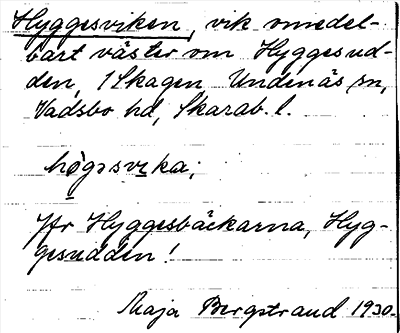 Hyggesviken, vik omedel-
bart väster om Hyggesud-
den, 1 Skagen Undenäs sn,
Vadsbo hd, Skarab. l.
høgəsvika;
Jfr Hyggesbäckarna, Hyg-
gesudden!
Maja Bergstrand 1930.